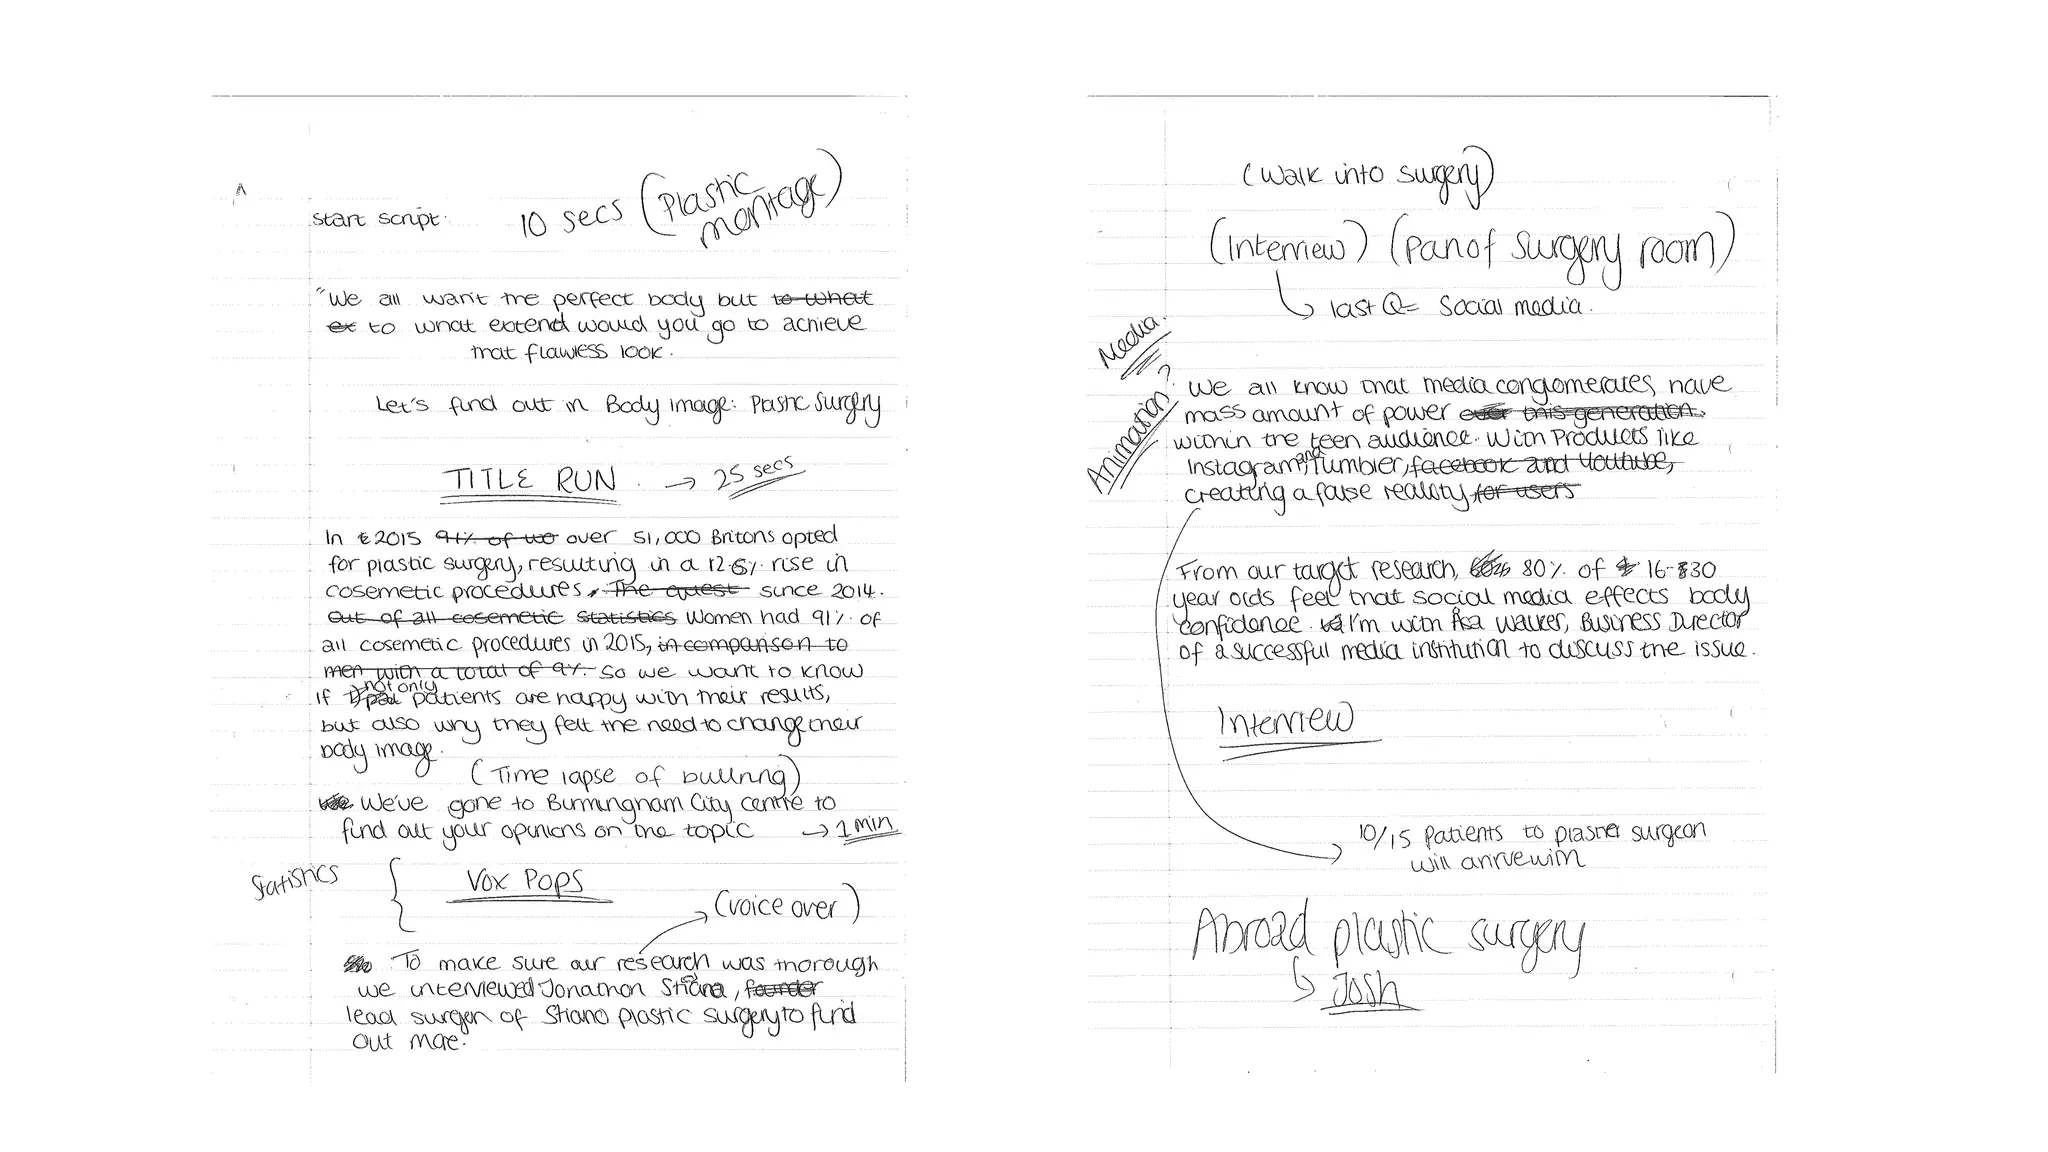 start script: 10 secs (Plastic montage)
"We all want the perfect body but to what
ex to what extend would you go to achieve
that flawless look.
Let's find out in Body image: Plastic Surgery
TITLE RUN. → 25 secs
In 2015 91% of wo over 51,000 Britons opted
for plastic surgery, resulting in a 12.6% rise in
cosemetic procedures, The quest since 2014.
Out of all cosemetic statistics Women had 91% of
all cosemetic procedures in 2015, in comparison to
men with a total of 9%. so we want to know
if not only patients are happy with their results,
but also why they felt the need to change their
body image.
(Time lapse of bullring)
We've gone to Birmingham City centre to
find out your opinions on the topic → 1 min
Statistics { Vox Pops
(voice over)
To make sure our research was thorough
we interviewed Jonathon Stiano, founder
lead surgen of Stiano plastic surgery to find
out more.
(Walk into surgery)
(Interview) (pan of surgery room)
last Q = Social media.
Media.
Animation?
We all know that media conglomerates, have
mass amount of power over this generation.
within the teen audience. With Products like
Instagram, and Tumbler, facebook and Youtube,
creating a false reality, for users
From our target research, 80% of 16-30
year olds feel that social media effects body
confidence. I'm with Asa Walker, Business Director
of a successful media institution to discuss the issue.
Interview
10/15 patients to plaster surgeon
will arrive with
Abroad plastic surgery
Josh